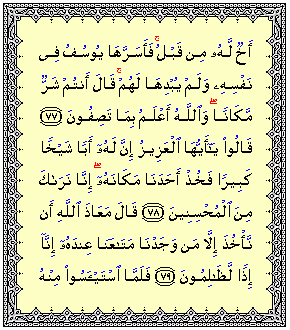 أَخٌ لَّهُۥ مِن قَبْلُ ۚ فَأَسَرَّهَا يُوسُفُ فِى
نَفْسِهِۦ وَلَمْ يُبْدِهَا لَهُمْ ۚ قَالَ أَنتُمْ شَرٌّ
مَّكَانًا ۖ وَٱللَّهُ أَعْلَمُ بِمَا تَصِفُونَ ﴿٧٧﴾
قَالُوا۟ يَـٰٓأَيُّهَا ٱلْعَزِيزُ إِنَّ لَهُۥٓ أَبًا شَيْخًا
كَبِيرًا فَخُذْ أَحَدَنَا مَكَانَهُۥٓ ۖ إِنَّا نَرَىٰكَ
مِنَ ٱلْمُحْسِنِينَ ﴿٧٨﴾ قَالَ مَعَاذَ ٱللَّهِ أَن
نَّأْخُذَ إِلَّا مَن وَجَدْنَا مَتَـٰعَنَا عِندَهُۥٓ إِنَّآ
إِذًا لَّظَـٰلِمُونَ ﴿٧٩﴾ فَلَمَّا ٱسْتَيْـَٔسُوا۟ مِنْهُ